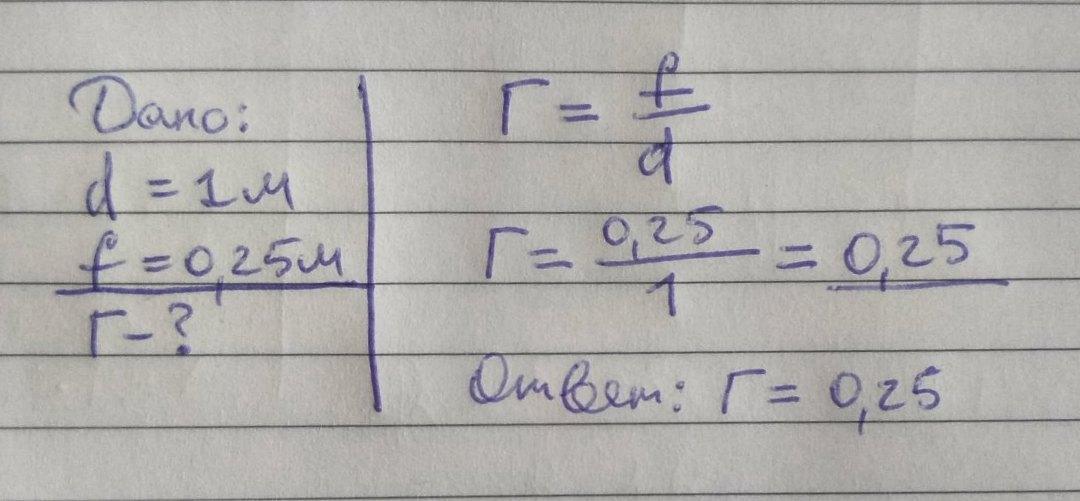 Дано:
d = 1 м
f = 0,25 м
Г - ?
Г = f/d
Г = 0,25/1 = 0,25
Ответ: Г = 0,25